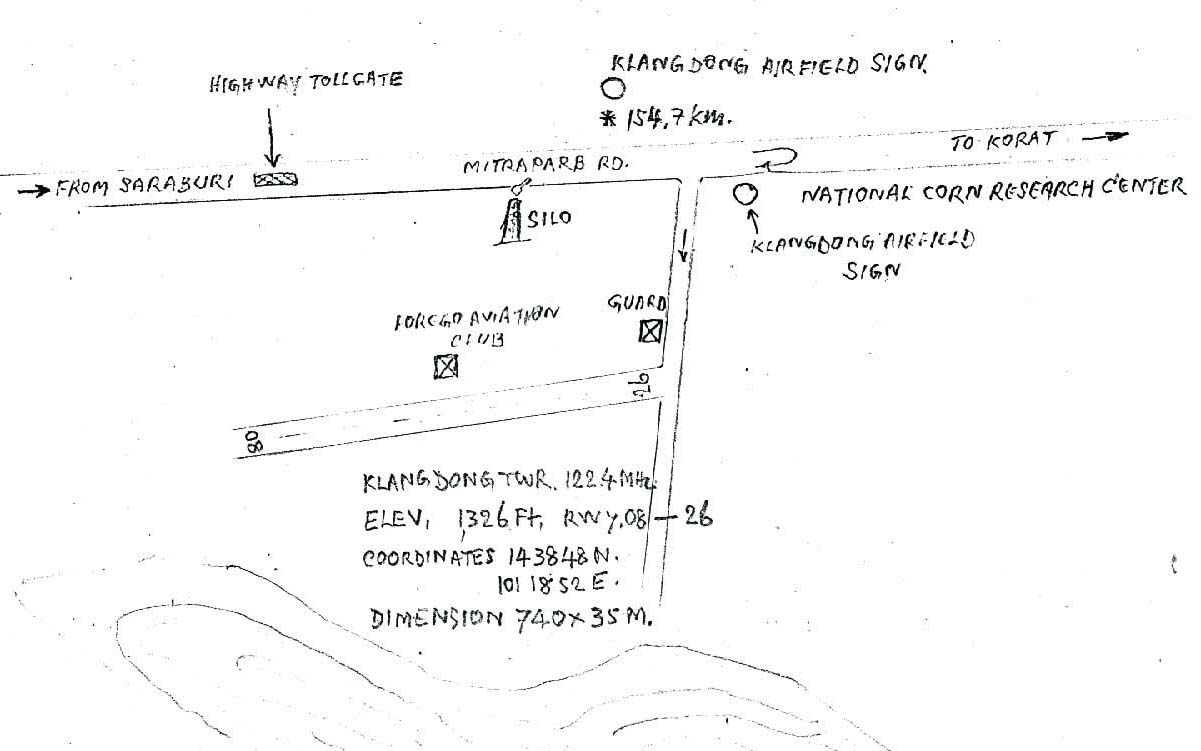 KLANGDONG AIRFIELD SIGN.
HIGHWAY TOLLGATE
* 154,7 km.
TO KORAT
MITRAPARB RD.
FROM SARABURI
NATIONAL CORN RESEARCH CENTER
SILO
KLANGDONG AIRFIELD
SIGN
GUARD
AVIATION
CLUB
26
08
KLANGDONG TWR. 122.4 MHz.
ELEV, 1,326 Ft, RWY, 08 — 26
COORDINATES 143848 N.
1011852 E.
DIMENSION 740 x 35 M.